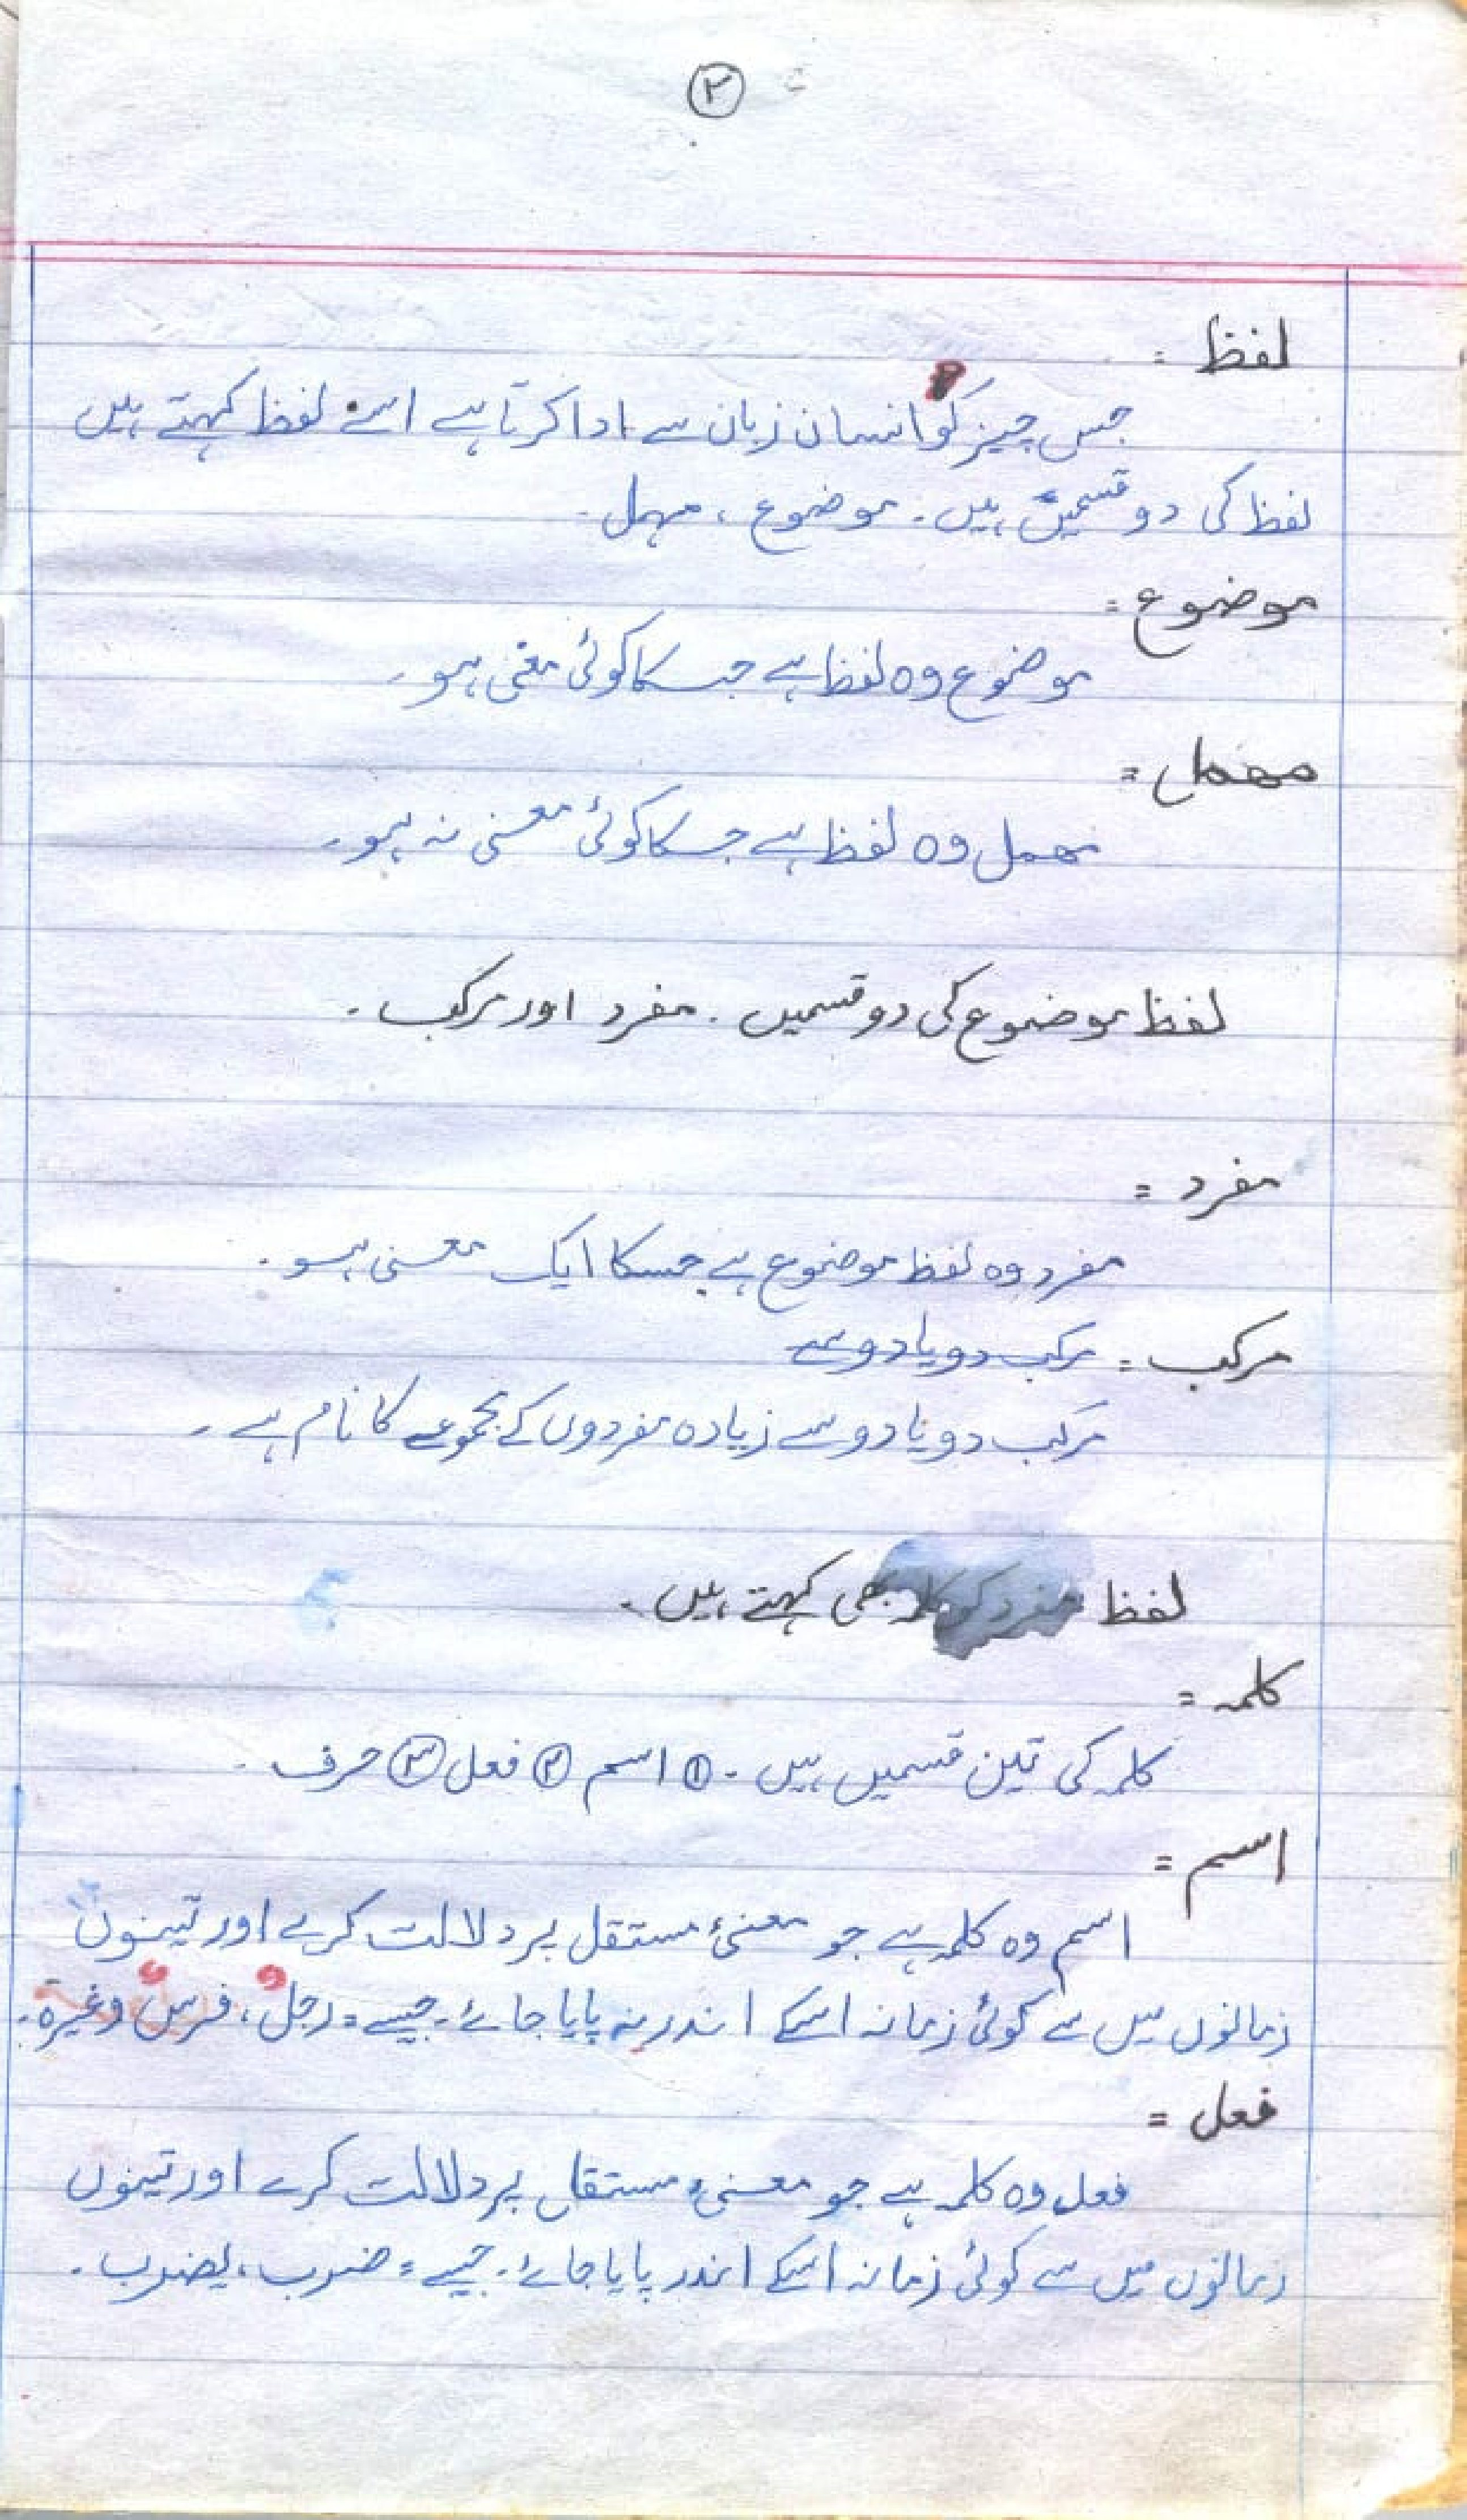 ۲
لفظ =
جس چیز کو انسان زبان سے ادا کرتا ہے اسے لفظ کہتے ہیں
لفظ کی دو قسمیں ہیں۔ موضوع ، مہمل ۔
موضوع =
موضوع وہ لفظ ہے جسکا کوئی معنی ہو۔
مهمل =
مهمل وہ لفظ ہے جسکا کوئی معنی نہ ہو۔
لفظ موضوع کی دو قسمیں ۔ مفرد اور مرکب ۔
مفرد =
مفرد وہ لفظ موضوع ہے جسکا ایک معنی ہو ۔
مرکب = مرکب دو یا دو سے
مرکب دو یا دو سے زیادہ مفردوں کے مجموعے کا نام ہے ۔
لفظ مفرد کو کلمہ بھی کہتے ہیں ۔
کلمہ =
کلمہ کی تین قسمیں ہیں ۔ ① اسم ② فعل ③ حرف ۔
اسم =
اسم وہ کلمہ ہے جو معنیٔ مستقل پر دلالت کرے اور تینوں
زمانوں میں سے کوئی زمانہ اسکے اندر نہ پایا جائے ۔ جیسے = رجلٌ ، فرسٌ وغیرہ ۔
فعل =
فعل وہ کلمہ ہے جو معنیٔ مستقل پر دلالت کرے اور تینوں
زمانوں میں سے کوئی زمانہ اسکے اندر پایا جائے ۔ جیسے = ضرب ، یضرب ۔